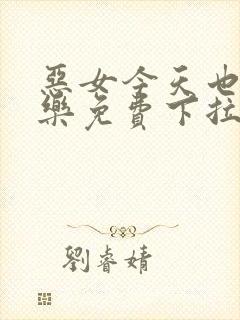 惡女今天也
樂免費下拉
劉睿婧